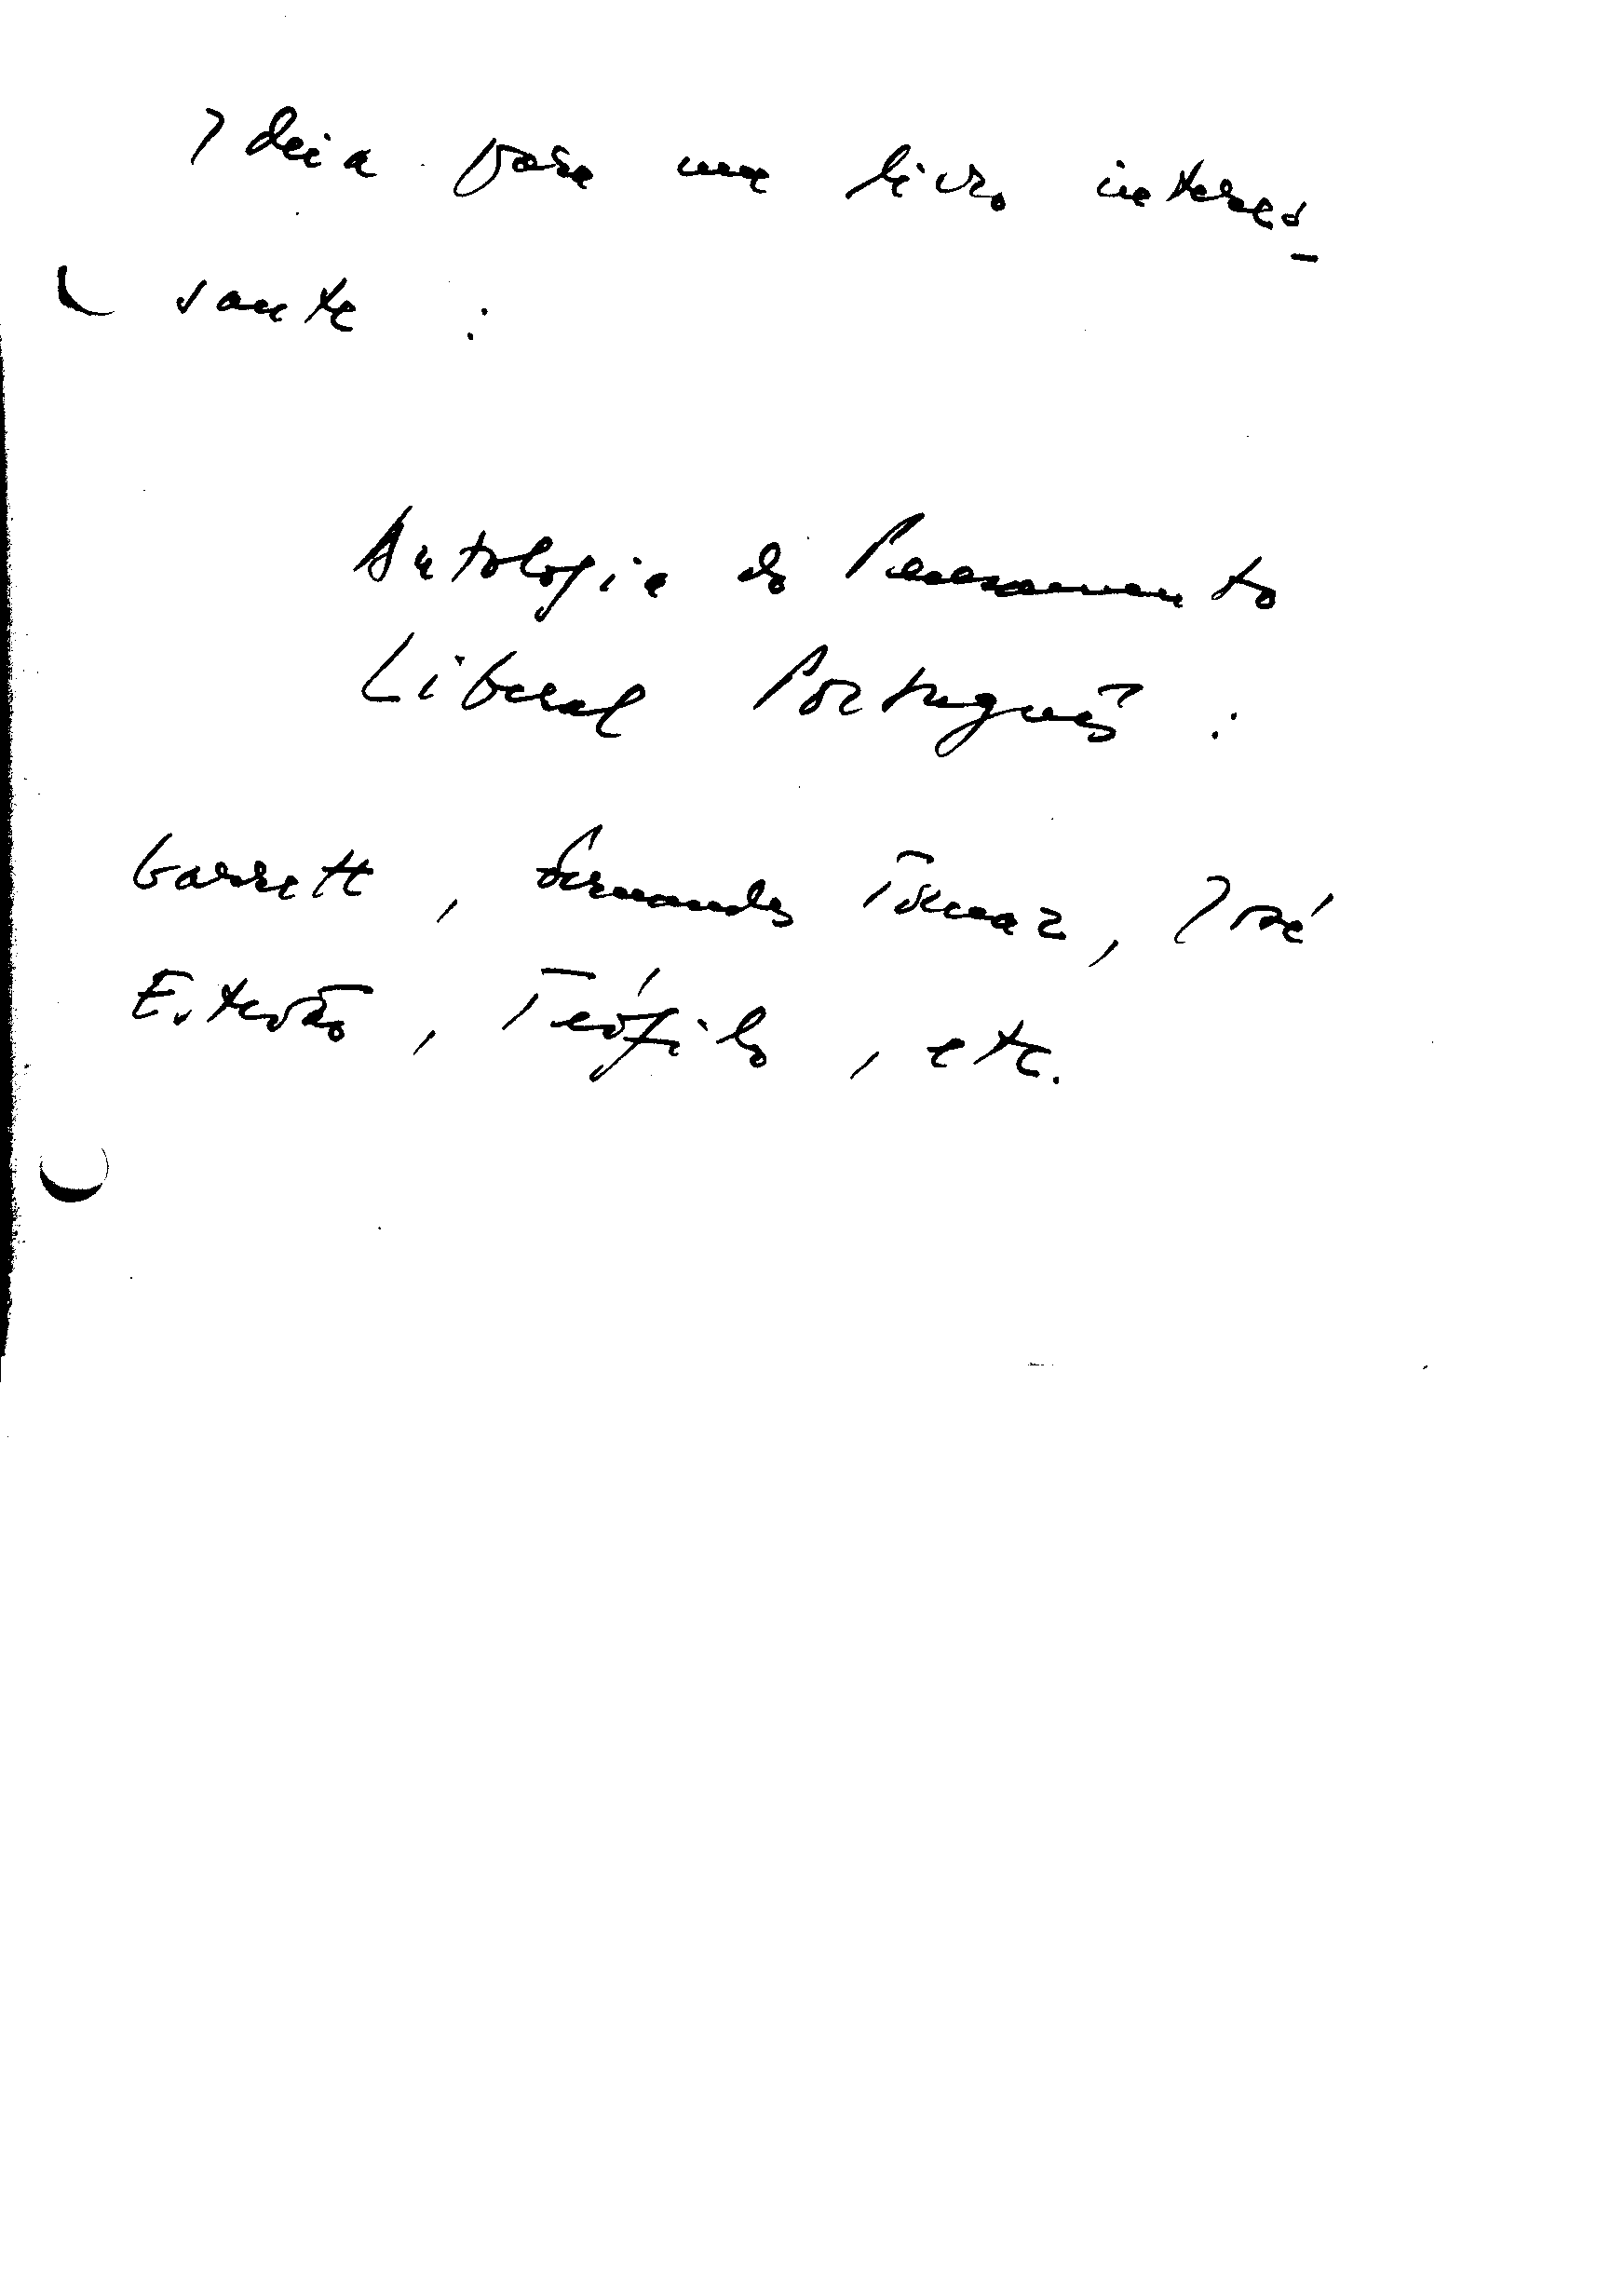 Ideia para um livro interes-
sante :
Antologia do Pensamento
Liberal Português :
Garrett, Fernandes Tomaz, José
Estevão, Teófilo, etc.